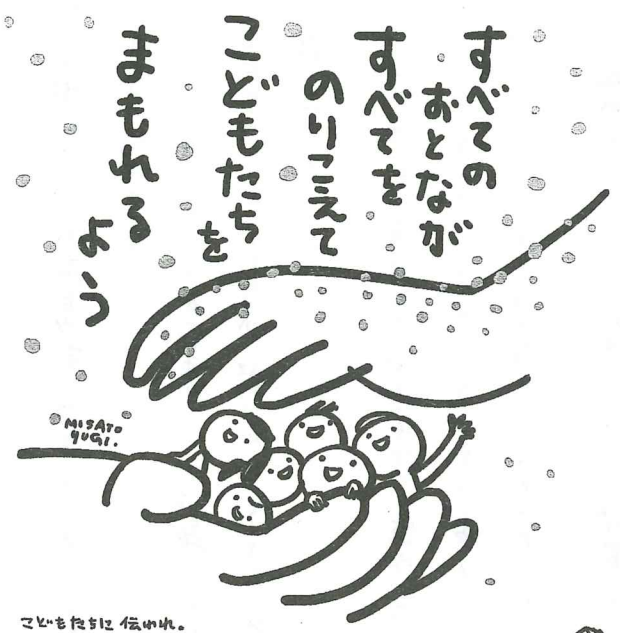 すべての
おとなが
すべてを
のりこえて
こどもたちを
まもれる
よう
MISATO
YUGI.
こどもたちに伝われ。